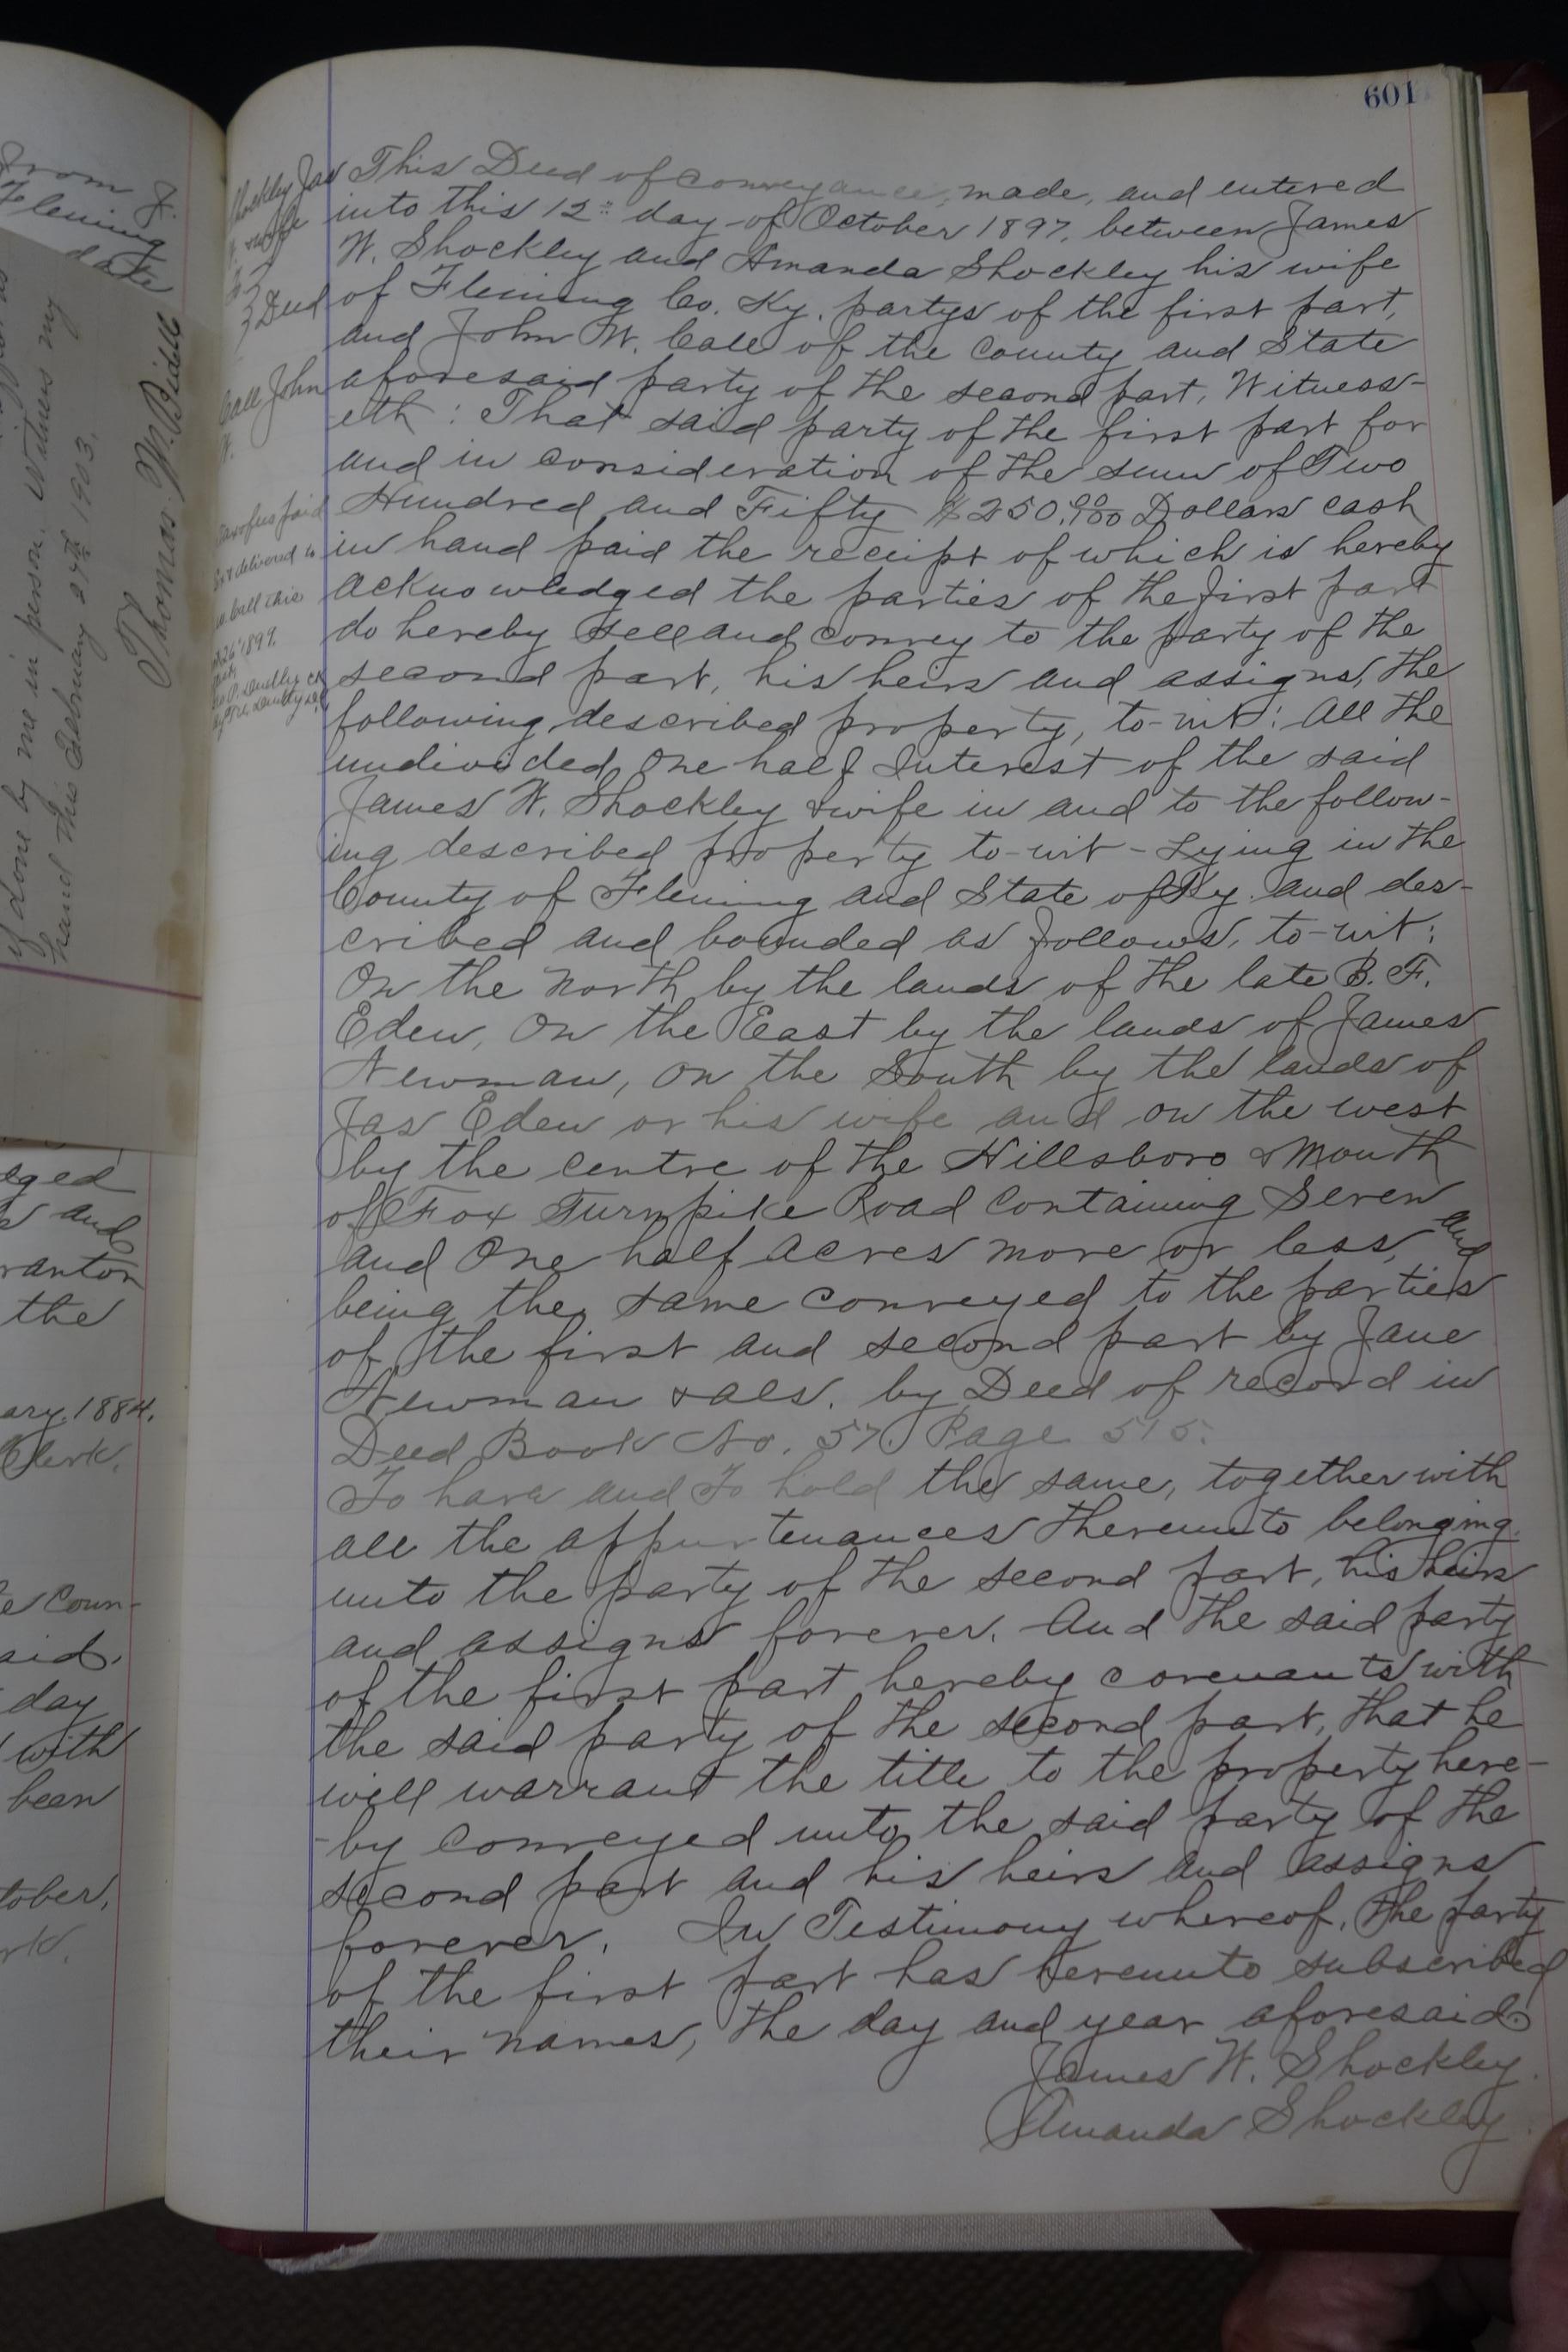 601
This Deed of conveyance, made, and entered
into this 12" day of October 1897. between James
W. Shockley and Amanda Shockley his wife
of Fleming Co. Ky. partys of the first part,
and John W. Call of the County and State
aforesaid party of the second part, Witness-
eth: That said party of the first part for
and in consideration of the sum of Two
Hundred and Fifty $250.00/100 Dollars cash
in hand paid the receipt of which is hereby
acknowledged the parties of the first part
do hereby sell and convey to the party of the
second part, his heirs and assigns, the
following described property, to-wit: All the
undivided One half Interest of the said
James W. Shockley & wife in and to the follow-
ing described property to-wit - Lying in the
County of Fleming and State of Ky. and des-
cribed and bounded as follows, to-wit:
On the North by the lands of the late B. F.
Eden, On the East by the lands of James
Newman, On the South by the lands of
Jas Eden or his wife and on the west
by the centre of the Hillsboro & Mouth
of Fox Turnpike Road Containing Seven
and One half Acres more or less, and
being the same conveyed to the parties
of the first and second part by Jane
Newman & als. by Deed of record in
Deed Book No. 57. Page 515.
To have and To hold the same, together with
all the appurtenances thereunto belonging.
unto the party of the second part, his heirs
and assigns forever. And the said party
of the first part hereby covenants with
the said party of the second part, that he
will warrant the title to the property here-
-by conveyed unto the said party of the
second part and his heirs and assigns
forever. In Testimony whereof, the party
of the first part has hereunto subscribed
their names, the day and year aforesaid.
James W. Shockley.
Amanda Shockley.
Shockley Jas
W. & wife
To } Deed
Call John
W.
Tax & fees paid
delivered to
Call this
26" 1899.
From J.
Fleming
date
if done by me in person. Witness my
hand this February 27th 1903.
Thomas W. Bidell
and
the
ary. 1884.
Clerk.
e Coun-
aid.
day
with
been
tober,
rk.